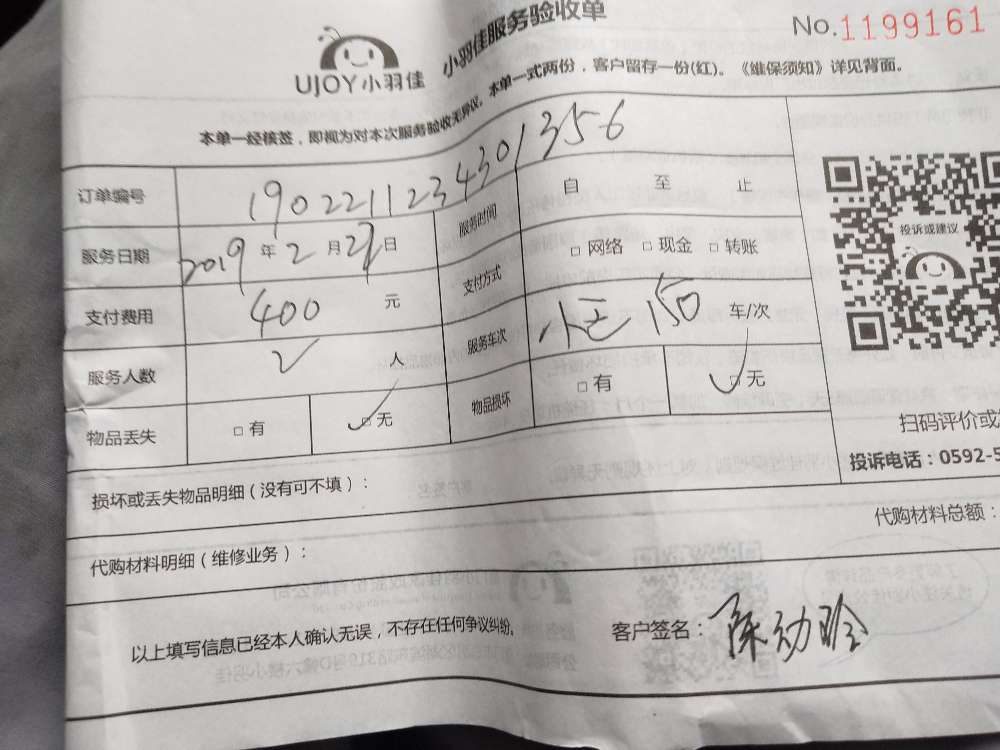 UJOY小羽佳
小羽佳服务验收单
No.1199161
本单一经核签,即视为对本次服务验收无异议。本单一式两份,客户留存一份(红)。《维保须知》详见背面。
订单编号 1902211234301356
服务日期 2019年2月 日
服务时间 自 至 止
支付费用 400 元
支付方式 □网络 □现金 □转账
服务人数 2 人
服务车次 150 车/次
物品丢失 □有 ✓□无
物品损坏 □有 ✓□无
投诉或建议
扫码评价或
投诉电话:0592-5
损坏或丢失物品明细(没有可不填):
代购材料总额:
代购材料明细(维修业务):
以上填写信息已经本人确认无误,不存在任何争议纠纷。
客户签名:陈幼玲